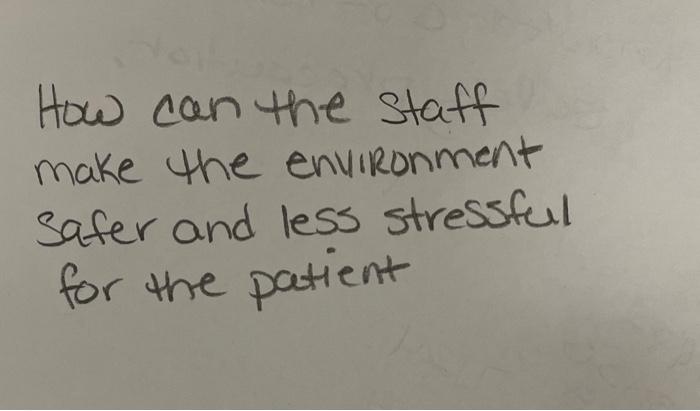 How can the staff
make the environment
safer and less stressful
for the patient